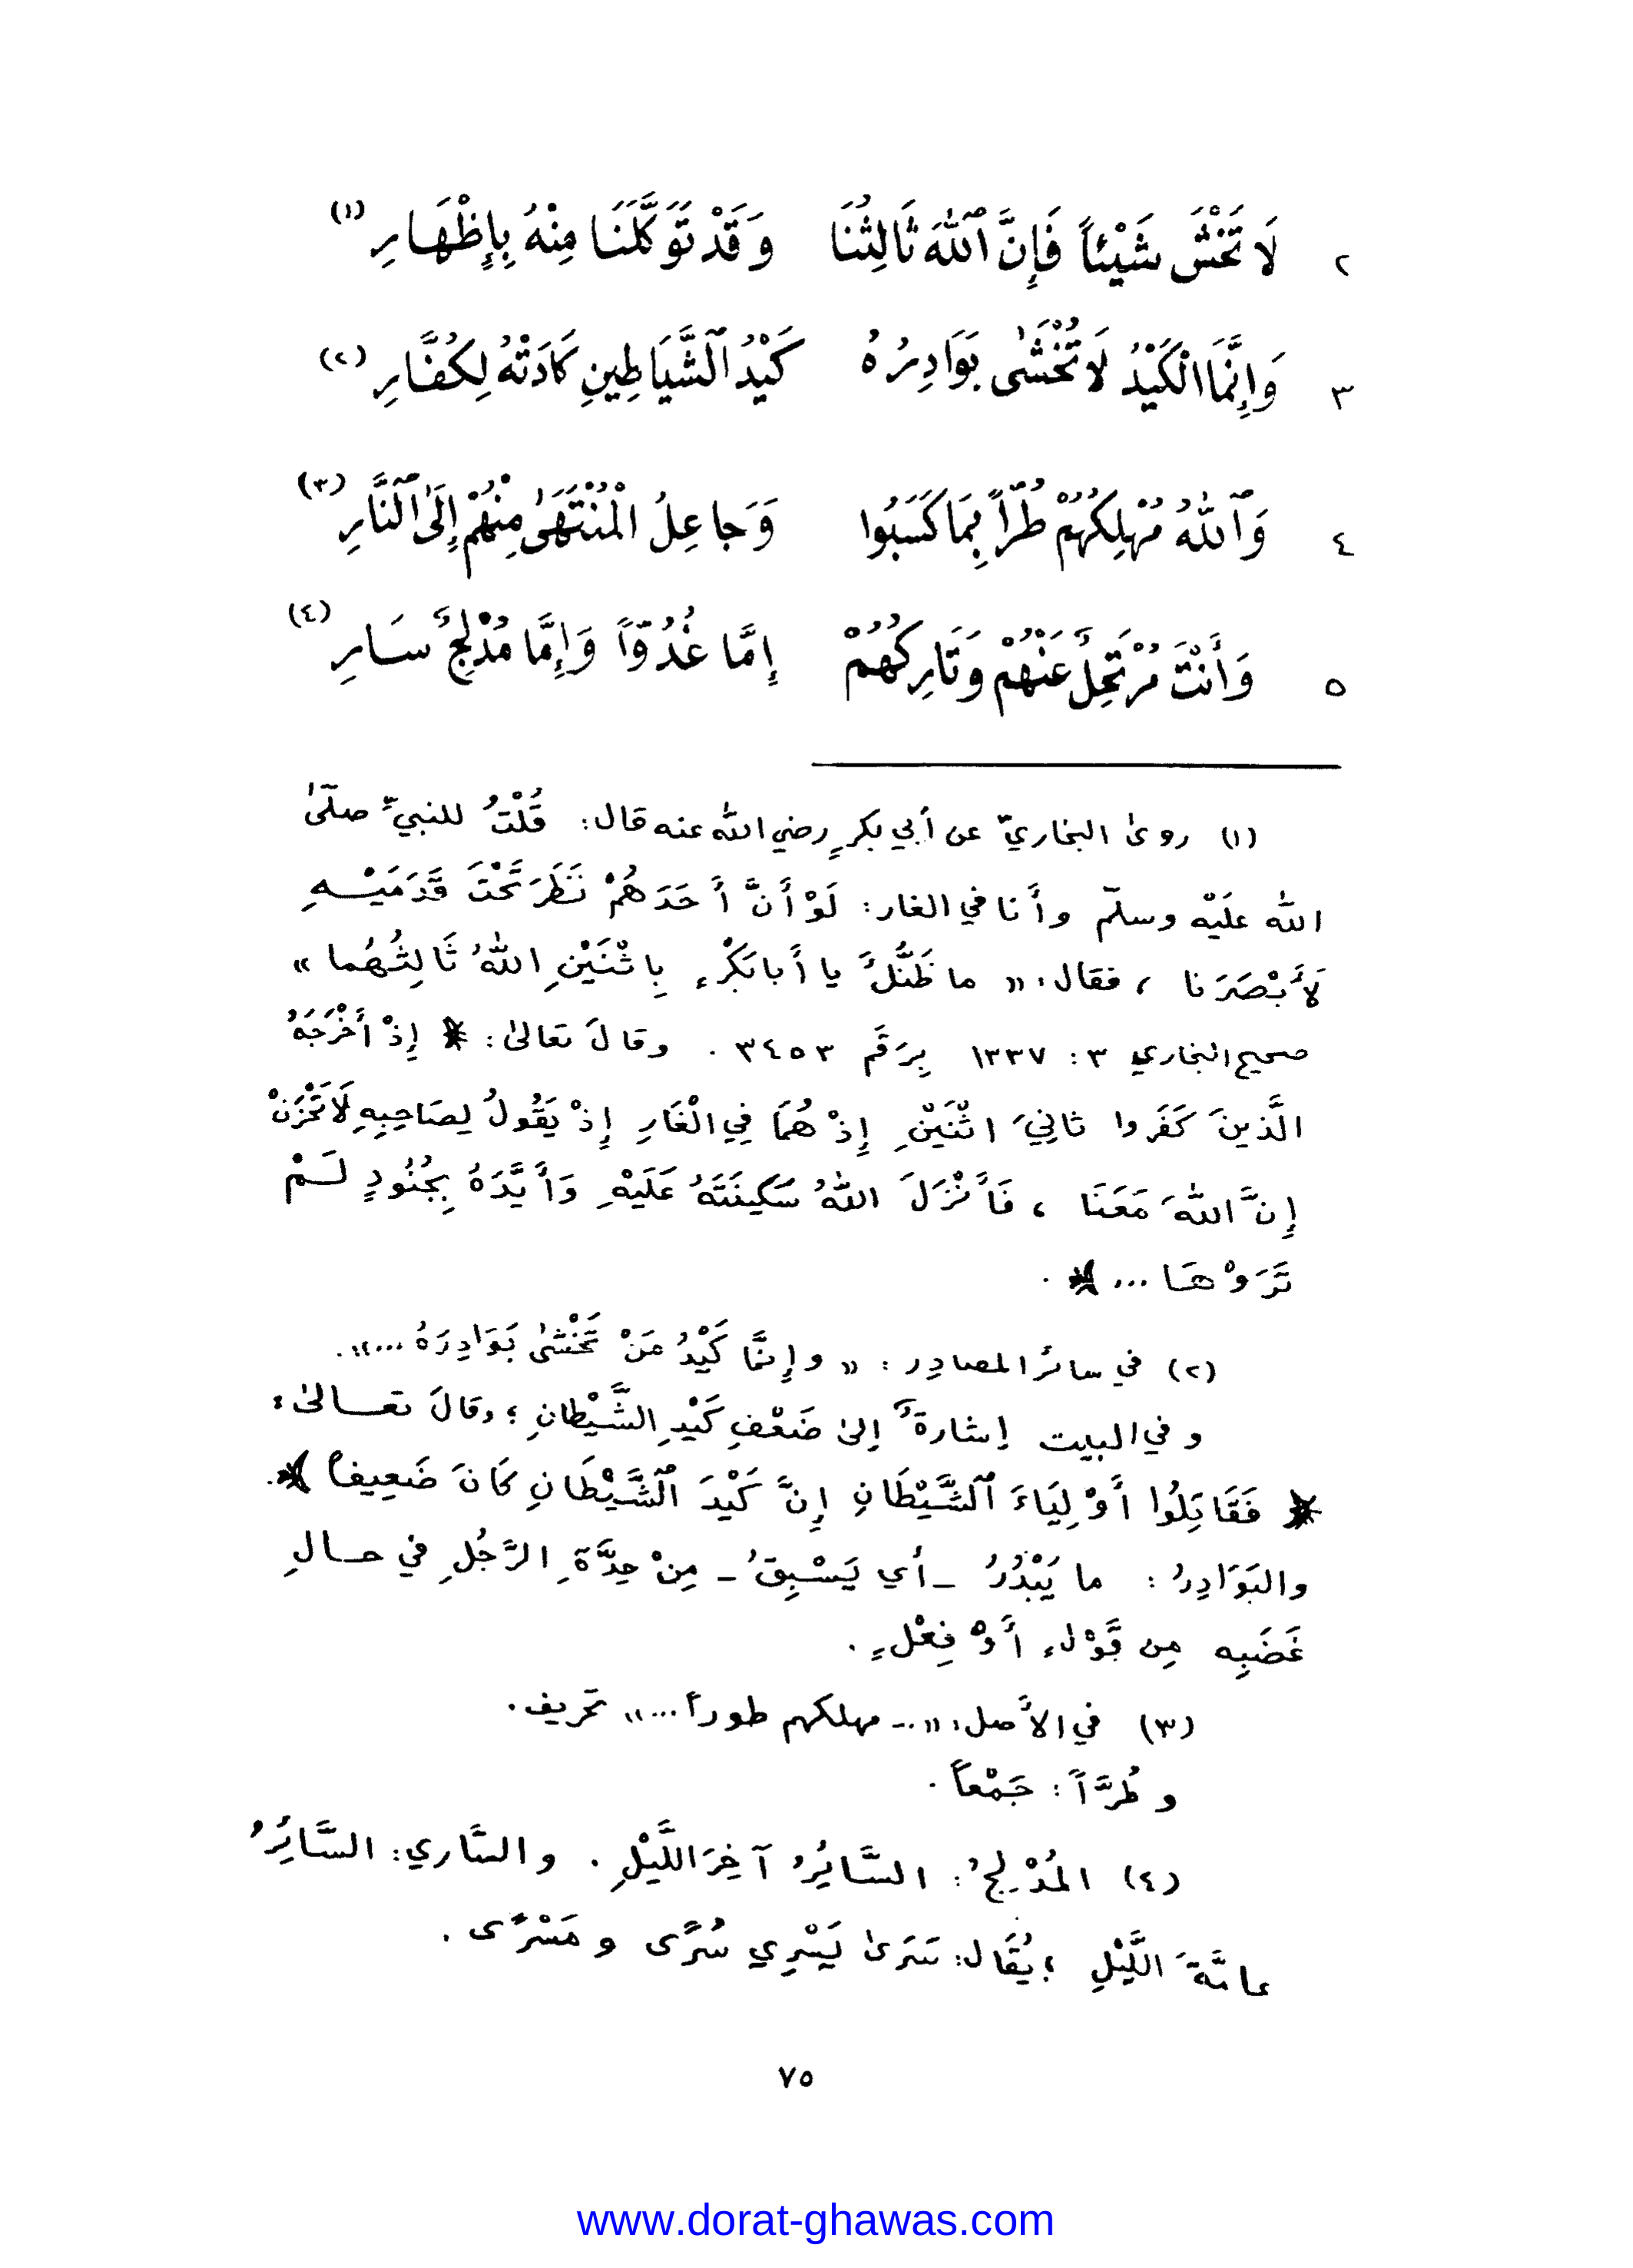 ٢ لَا تَخْشَ شَيْئاً فَإِنَّ ٱللهَ ثَالِثُنَا وَقَدْ تَوَكَّلَنَا مِنْهُ بِإِظْهَارِ (١)
٣ وَإِنَّمَا الْكَيْدُ لَا تُخْشَىٰ بَوَادِرُهُ كَيْدُ ٱلشَّيَاطِينِ كَادَتْهُ لِكُفَّارِ (٢)
٤ وَٱللهُ مُهْلِكُهُمْ طُرّاً بِمَا كَسَبُوا وَجَاعِلُ الْمُنْتَهَىٰ مِنْهُمْ إِلَىٰ ٱلنَّارِ (٣)
٥ وَأَنْتَ مُرْتَحِلٌ عَنْهُمْ وَتَارِكُهُمْ إِمَّا غُدُوّاً وَإِمَّا مُدْلِجٌ سَارِ (٤)
(١) روىٰ البخاريّ عن أبي بكرٍ رضي الله عنه قال: قُلْتُ للنبيِّ صلّىٰ
الله علَيْه وسلّم وأَنا في الغار: لَوْ أَنَّ أَحَدَهُمْ نَظَرَ تَحْتَ قَدَمَيْهِ
لأَبْصَرَنا ، فقال: « ما ظَنُّكَ يا أَبا بَكْرٍ بِاثْنَيْنِ اللهُ ثَالِثُهُما »
صحيح البخاري ٣ : ١٣٣٧ بِرَقَم ٣٤٥٣ . وقالَ تعالىٰ : ﴿ إِذْ أَخْرَجَهُ
الَّذينَ كَفَروا ثانِيَ اثْنَيْنِ إِذْ هُمَا فِي الْغَارِ إِذْ يَقُولُ لِصَاحِبِهِ لَا تَحْزَنْ
إِنَّ اللهَ مَعَنَا ، فَأَنْزَلَ اللهُ سَكِينَتَهُ عَلَيْهِ وَأَيَّدَهُ بِجُنُودٍ لَمْ
تَرَوْهَا ... ﴾ .
(٢) في سائر المصادِر : « وإِنَّمَا كَيْدُ مَنْ تَخْشَىٰ بَوَادِرَهُ ...» .
وفي البيت إشارةٌ إلىٰ ضَعْفِ كَيْدِ الشَّيْطانِ ؛ وقالَ تعالىٰ :
﴿ فَقَاتِلُوا أَوْلِيَاءَ ٱلشَّيْطَانِ إِنَّ كَيْدَ ٱلشَّيْطَانِ كَانَ ضَعِيفاً ﴾.
والبَوَادِرُ : ما يَبْدُرُ - أَي يَسْبِقُ - مِنْ حِدَّةِ الرَّجُلِ في حالِ
غَضَبِه مِن قَوْلٍ أَوْ فِعْلٍ .
(٣) في الأَصل: «... مهلكهم طوراً ...» تحريف .
وطُرَّاً : جَمْعاً .
(٤) المُدْلِجُ : السَّائِرُ آخِرَ اللَّيْلِ . والسَّاري: السَّائِرُ
عامَّةَ اللَّيْلِ ؛ يُقَال: سَرَىٰ يَسْرِي سُرًى ومَسْرًى .
٧٥
www.dorat-ghawas.com